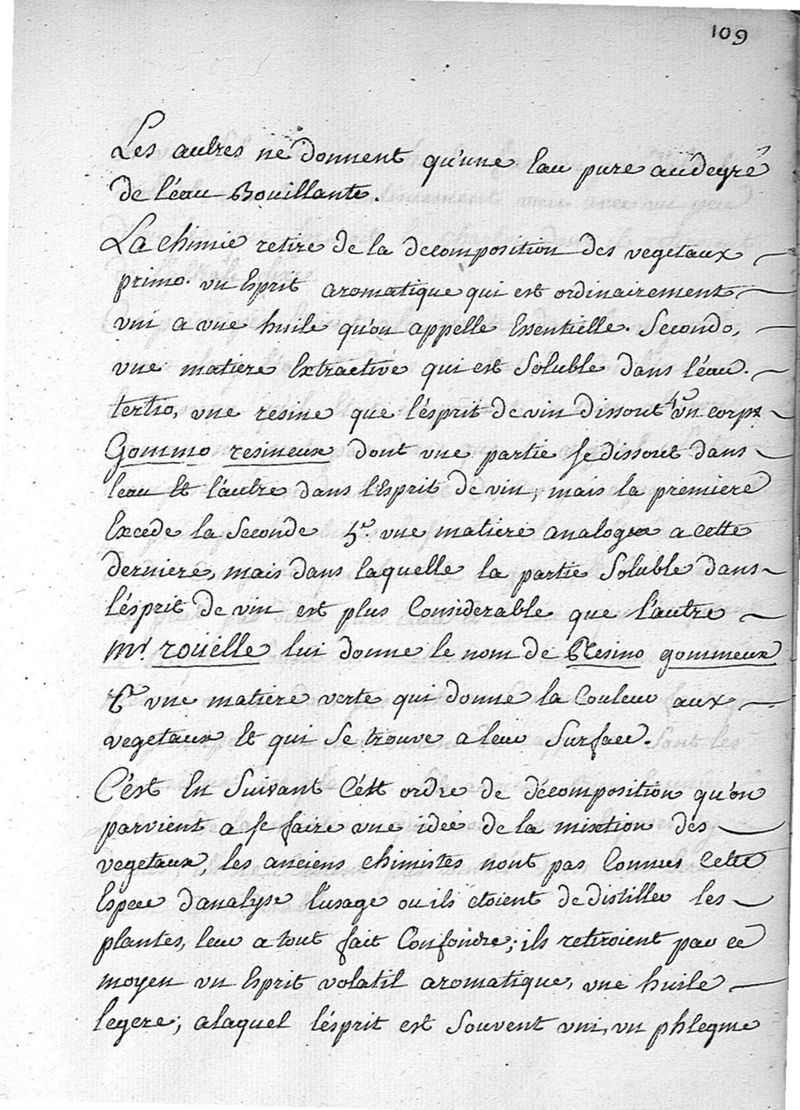 109
Les autres ne donnent qu'une Eau pure au degré
de l'éau Bouillante.
La chimie retire de la decomposition des vegetaux
primo. vn Esprit aromatique qui est ordinairement
vni a vne huile qu'on appelle Essentielle. Secondo,
vne matiere Extractive qui est Soluble dans l'éau.
tertio, vne resine que l'ésprit de vin dissout 4.º vn corps
Gommo resineux dont vne partie se dissout dans
leau Et l'autre dans l'Esprit de vin, mais la premiere
Excede la Seconde 5.º vne matiere analogue a cette
derniere, mais dans laquelle la partie Soluble dans
l'ésprit de vin est plus Considerable que l'autre
Mr. rouelle lui donne le nom de Resino gommeux
6.º vne matiere verte qui donne la Couleur aux
vegetaux Et qui Se trouve a leur Surface.
C'ést En Suivant Cétt ordre de décomposition qu'on
parvient a se faire vne idée de la mixtion des
vegetaux, les anciens chimistes nont pas Connus Cette
Espece d'analyse l'usage ou ils etoient de distiller les
plantes, leur a tout fait Confondre; ils retiroient par ce
moyen vn Esprit volatil aromatique, vne huile
legere; alaquel l'ésprit est Souvent vni, vn phlegme